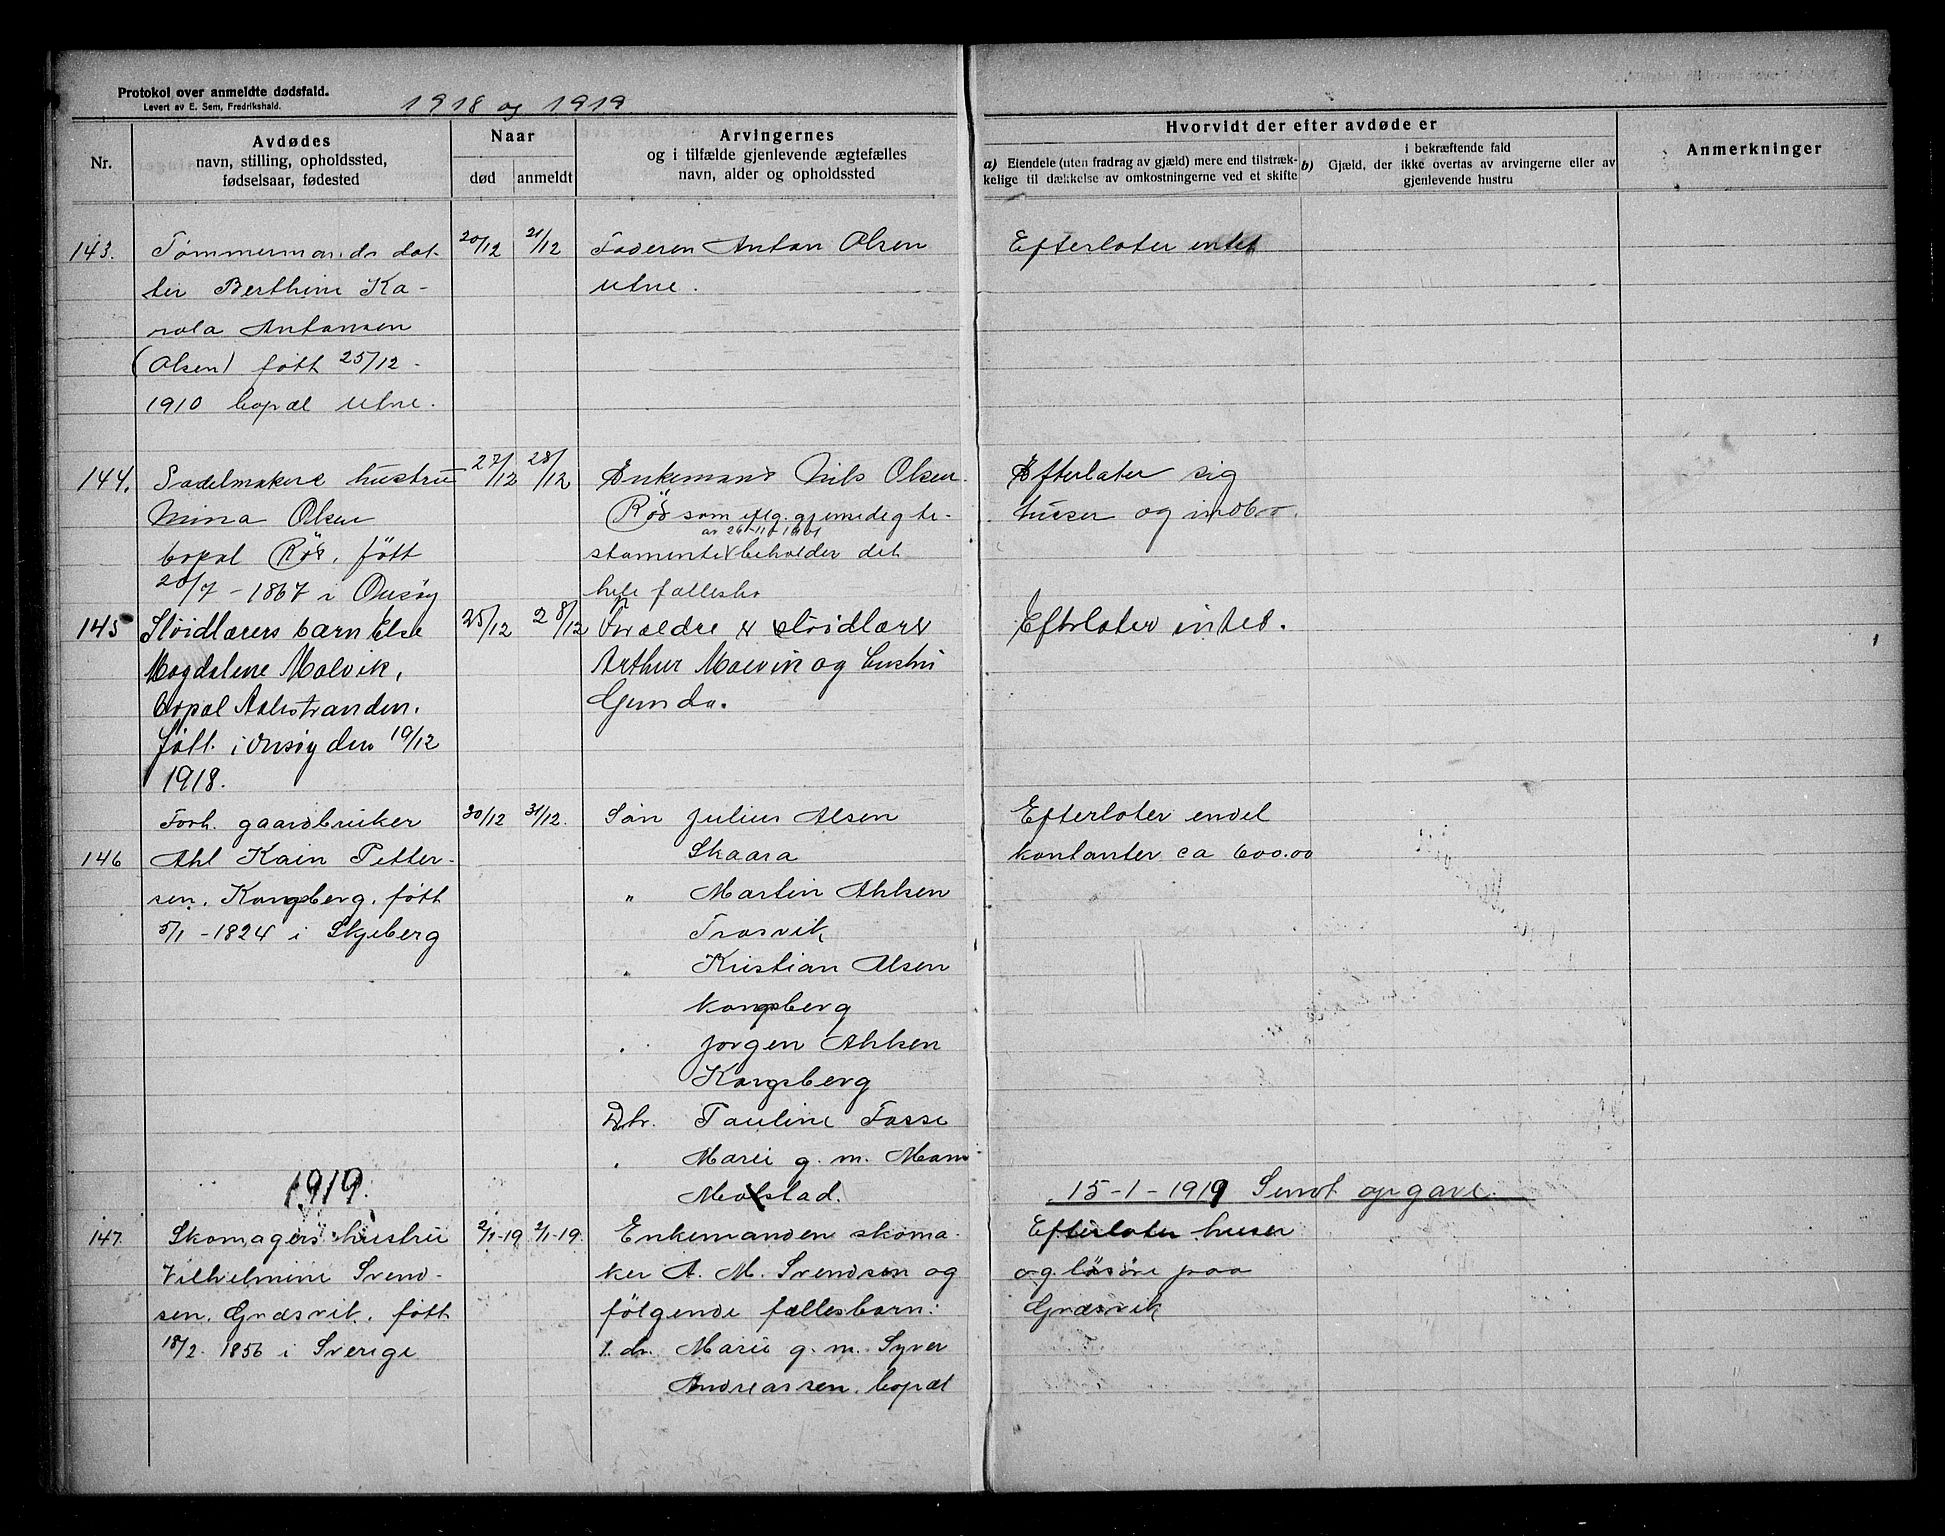 Protokol over anmeldte dødsfald.
Levert av E. Sem, Fredrikshald.
1918 og 1919
Nr.
Avdødes
navn, stilling, opholdssted,
fødselsaar, fødested
Naar
død
anmeldt
Arvingernes
og i tilfælde gjenlevende ægtefælles
navn, alder og opholdssted
Hvorvidt der efter avdøde er
a) Eiendele (uten fradrag av gjæld) mere end tilstræk-
kelige til dækkelse av omkostningerne ved et skifte
i bekræftende fald
b) Gjæld, der ikke overtas av arvingerne eller av
gjenlevende hustru
Anmerkninger
143.
Tømmermands dat-
ter Berthine Ka-
rola Antonsen
(Olsen) født 25/12 -
1910 bopæl Utne.
20/12
21/12
Faderen Anton Olsen
Utne.
Efterlater intet
144.
Sadelmakers hustru
Mina Olsen
bopal Rød. født
20/7 - 1867 i Onsøy
27/12
28/12
Enkemand Nils Olsen
Rød som iflg. gjensidig te-
av 26-11-1901
stamente beholder det
hele fællesbo
Efterlater sig
huser og indbo.
145
Sløidlærers barn Else
Magdalene Malvik,
bopal Aalestranden.
født i Onsøy den 19/12
1918.
25/12
28/12
Foraldre sløidlærer
Arthur Malvin og hustru
Gunda.
Efterlater intet.
146
Forh. gaardbruker
Ahl Kain Petter-
sen. Kongsberg. født
5/1 - 1824 i Skjeberg
30/12
31/12.
Søn Julius Alsen
Skaara
" Martin Ahlsen
Trosvik
" Kristian Alsen
Kongsberg
" Jørgen Ahlsen
Kongsberg
Dtr. Pauline Fosse
" Marie g. m. Mam
Molstad.
Efterlater endel
kontanter ca 600.00
15-1-1919 Sendt opgave.
1919.
147.
Skomagers hustru
Vilhelmine Svend-
sen. Græsvik. født
18/2. 1856 i Sverige
2/1-19
2/1-19.
Enkemanden skoma-
ker A. M. Svendsen og
følgende fællesbarn:
1. dr. Marie g. m. Syver
Andreassen. bopæl
Efterlater huser
og løsøre paa
Græsvik